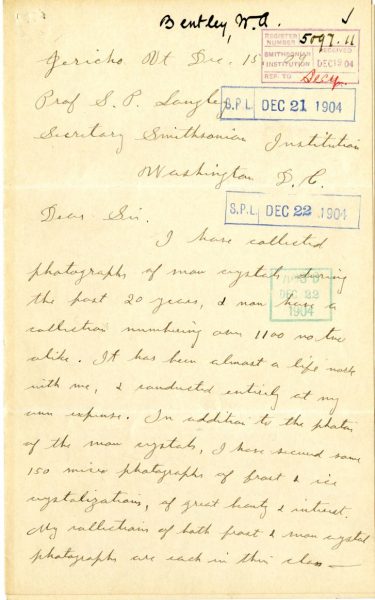 Bentley, W.A.
REGISTER NUMBER 5097.11
SMITHSONIAN INSTITUTION
RECEIVED DEC 19 04
REF. TO Secy.
Jericho Vt Dec. 15
Prof S. P. Langley
S.P.L. DEC 21 1904
Secretary Smithsonian Institution
Washington D. C.
S.P.L. DEC 22 1904
Dear Sir.
I have collected
photographs of snow crystals during
the past 20 years, & now have a
DEC 22 1904
collection numbering over 1100 no two
alike. It has been almost a life work
with me, & conducted entirely at my
own expense. In addition to the photos
of the snow crystals, I have secured some
150 micro photographs of frost & ice
crystalizations, of great beauty & interest.
My collections of both frost & snow crystal
photographs are each in this class